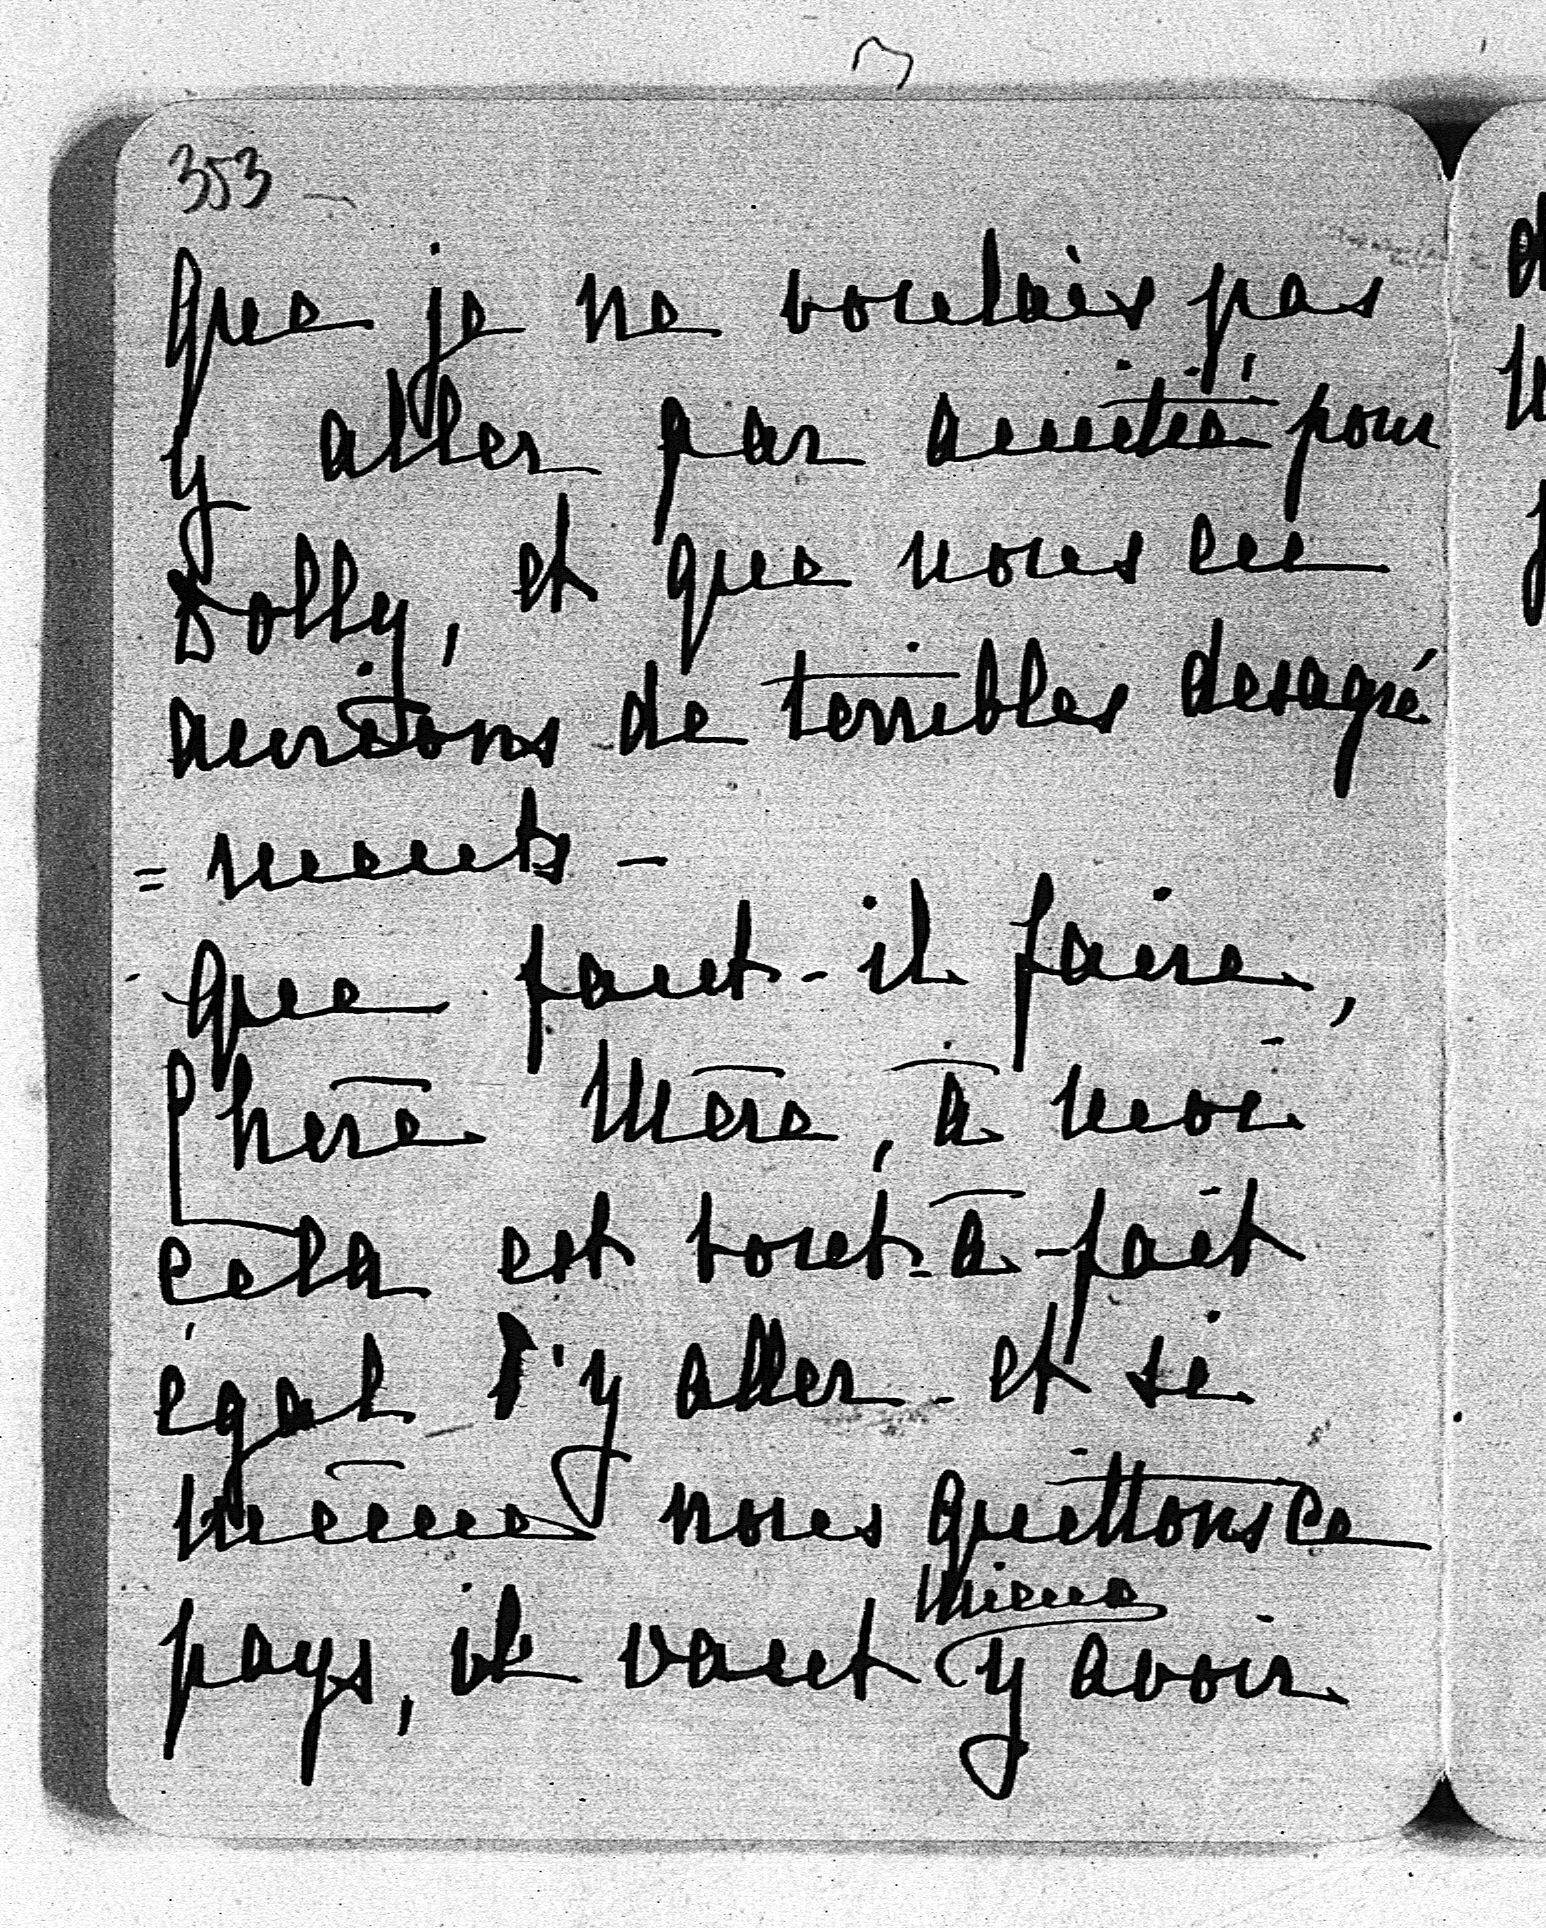 353
que je ne voulais pas
y aller par amitié pour
Dolly, et que nous en
aurions de terribles desagré
= ments -
Que faut-il faire,
Chère Mère, à moi
cela est tout-à-fait
égal d'y aller - et si
même nous quittons ce
mieux
pays, il vaut y avoir